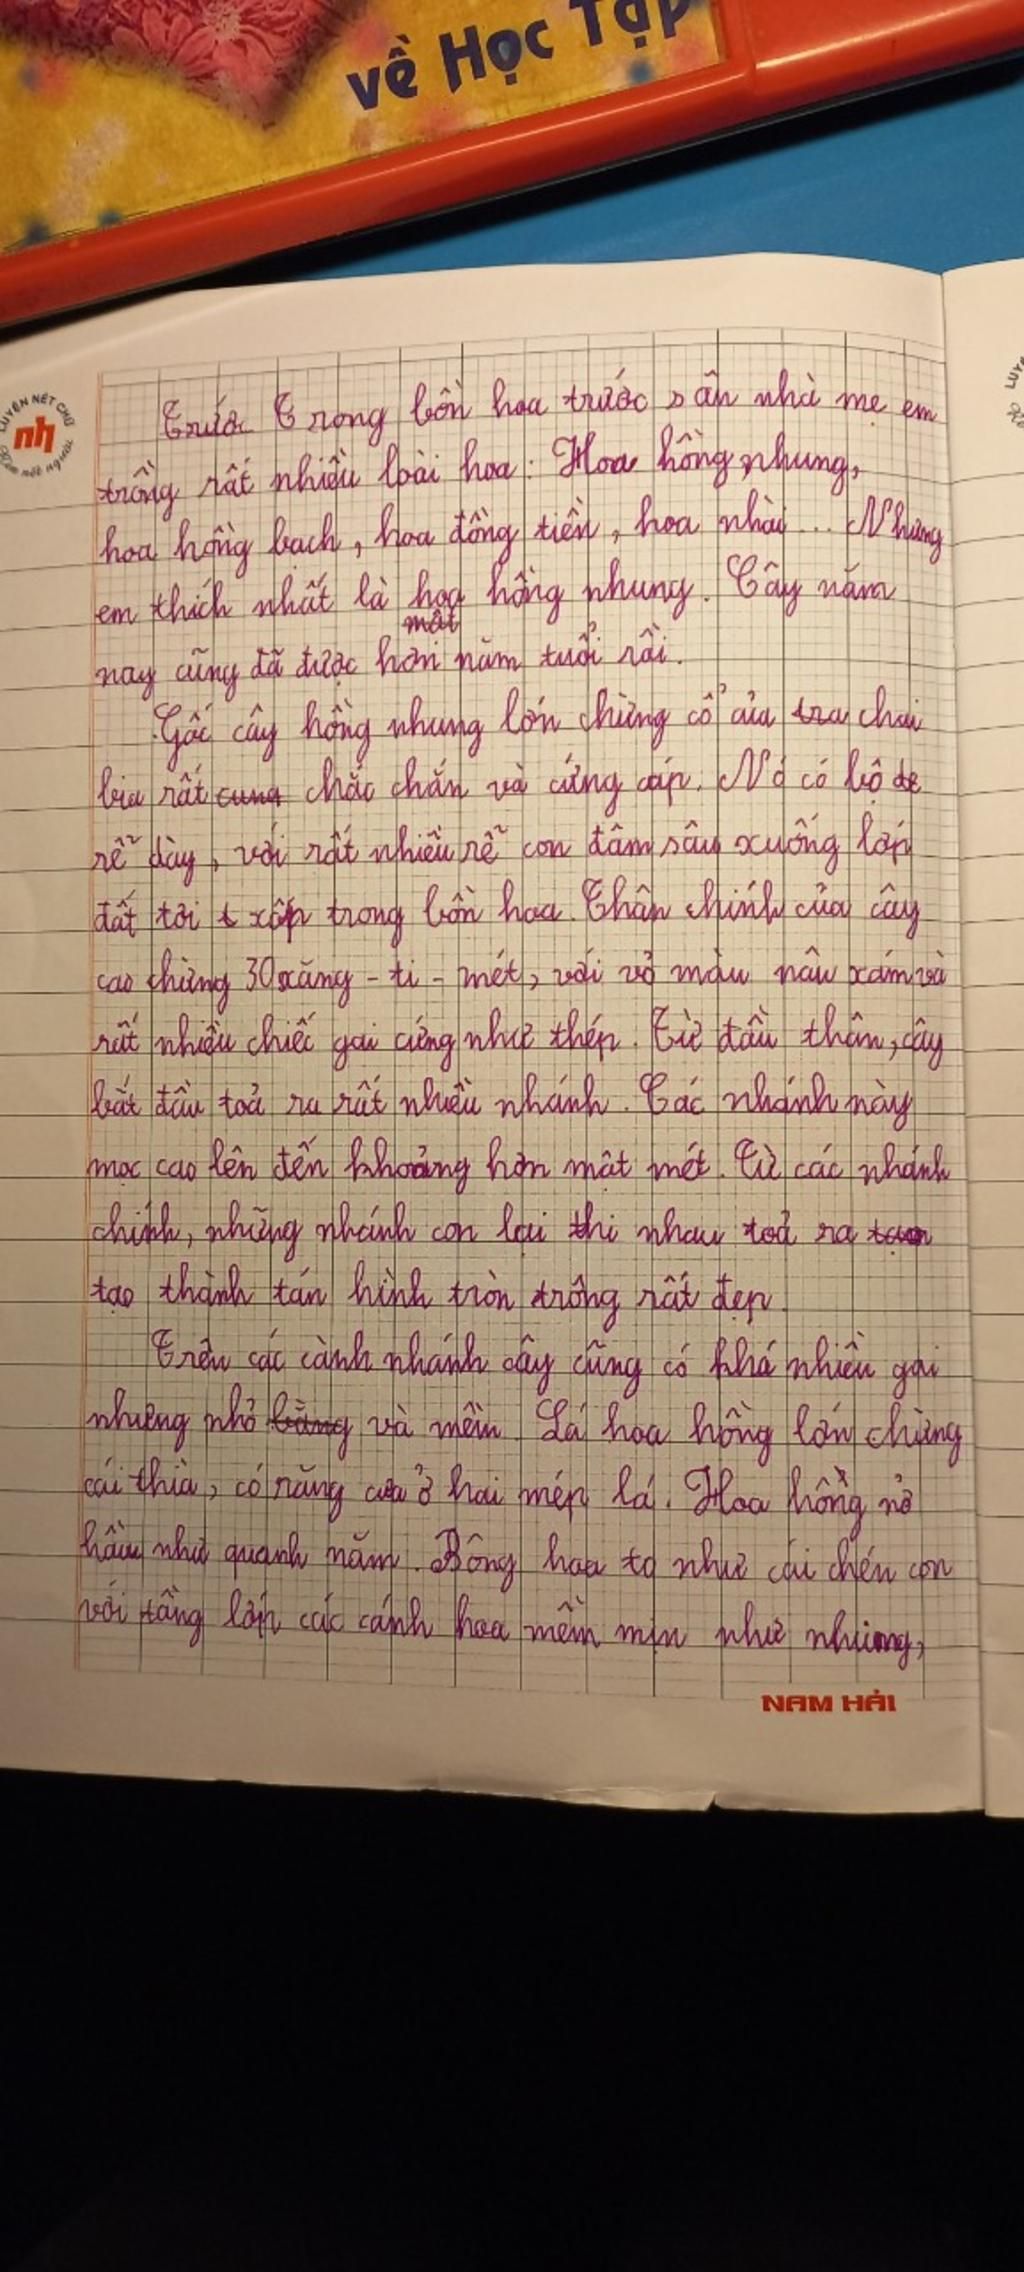 về Học Tập
LUYỆN NÉT CHỮ
nh
Rèn nết người
LUY
Trước Trong bồn hoa trước sân nhà mẹ em
trồng rất nhiều loài hoa: Hoa hồng nhung,
hoa hồng bạch, hoa đồng tiền, hoa nhài... Nhưng
em thích nhất là hoa hồng nhung. Cây năm
một
nay cũng đã được hơn năm tuổi rồi.
Gốc cây hồng nhung lớn chừng cổ của tra chai
bia rất cung chắc chắn và cứng cáp. Nó có bộ de
rễ dày, với rất nhiều rễ con đâm sâu xuống lớp
đất tơi t xốp trong bồn hoa. Thân chính của cây
cao chừng 30 xăng-ti-mét, với vỏ màu nâu xám và
rất nhiều chiếc gai cứng như thép. Từ đầu thân, cây
bắt đầu toả ra rất nhiều nhánh. Các nhánh này
mọc cao lên đến khoảng hơn một mét. Từ các nhánh
chính, những nhánh con lại thi nhau toả ra
tạo thành tán hình tròn trông rất đẹp.
Trên các cành nhánh cây cũng có khá nhiều gai
nhưng nhỏ bằng và mềm. Lá hoa hồng lớn chừng
cái thìa, có răng cưa ở hai mép lá. Hoa hồng nở
hầu như quanh năm. Bông hoa to như cái chén con
với tầng lớp các cánh hoa mềm mịn như nhung,
NAM HẢI